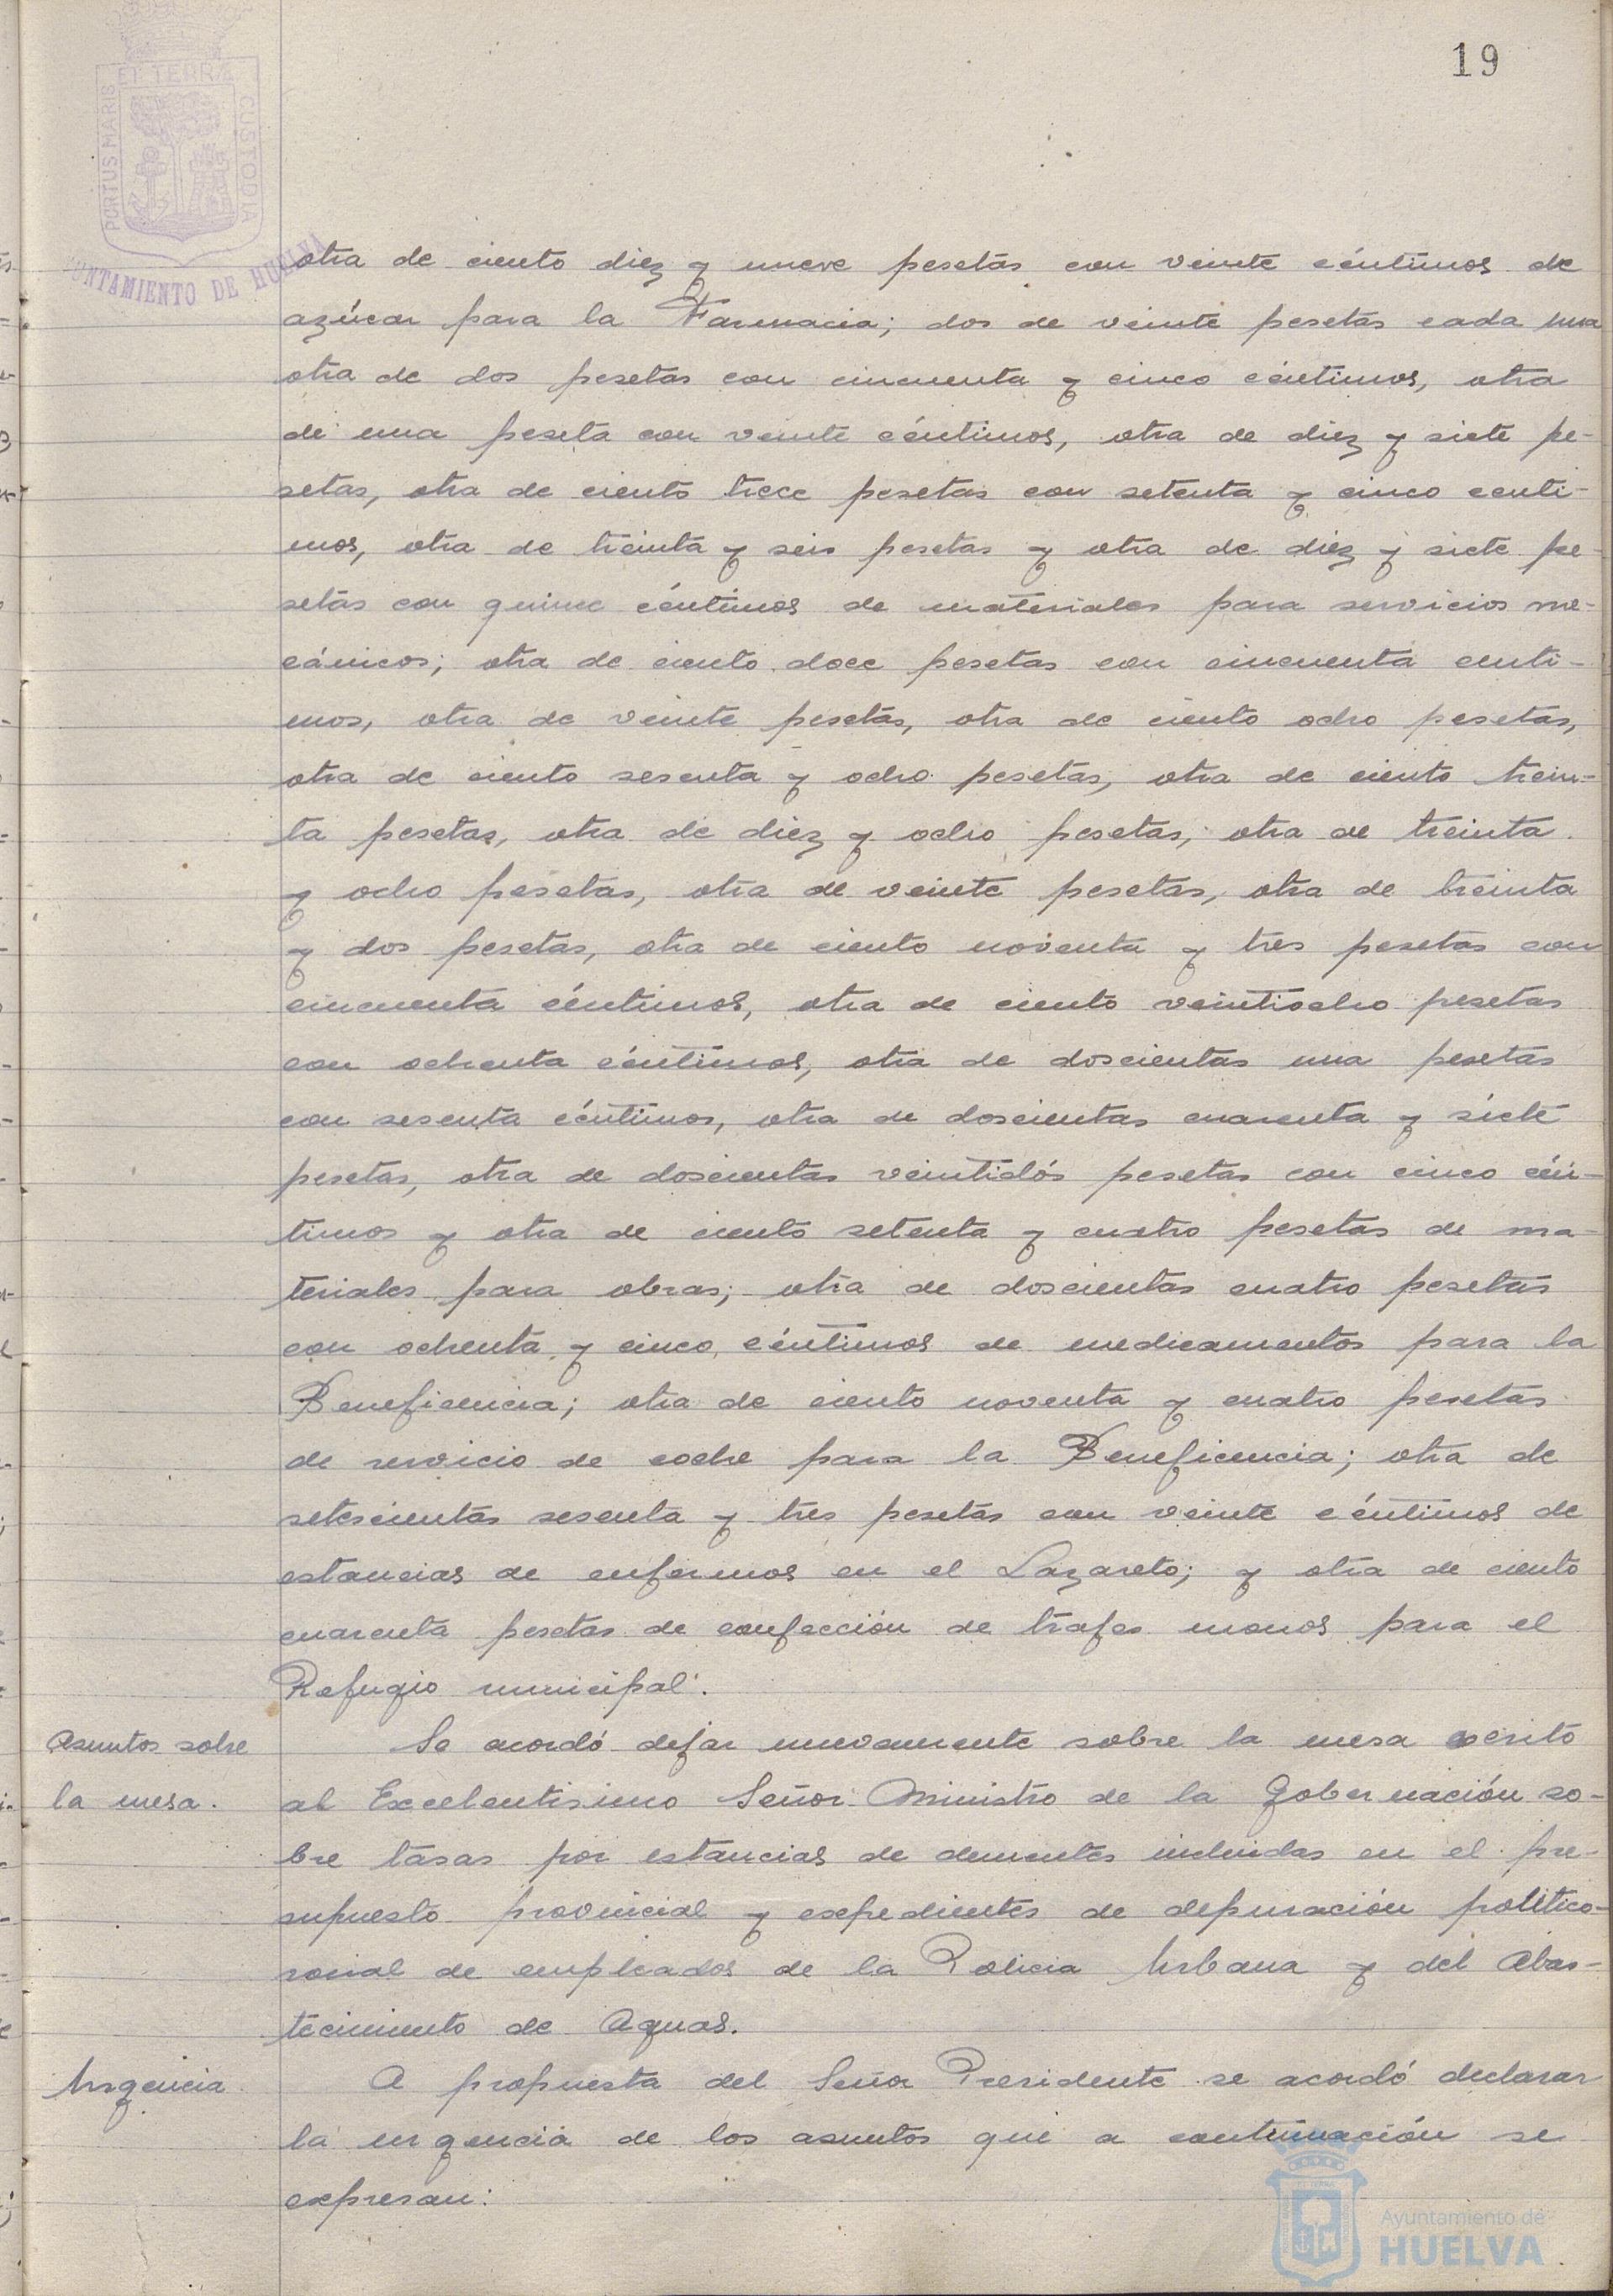 19
PORTUS MARIS ET TERRÆ CUSTODIA
AYUNTAMIENTO DE HUELVA
otra de ciento diez y nueve pesetas con veinte céntimos de
azúcar para la Farmacia; dos de veinte pesetas cada una
otra de dos pesetas con cincuenta y cinco céntimos, otra
de una peseta con veinte céntimos, otra de diez y siete pe-
setas, otra de ciento trece pesetas con setenta y cinco centi-
mos, otra de treinta y seis pesetas y otra de diez y siete pe-
setas con quince céntimos de materiales para servicios me-
cánicos; otra de ciento doce pesetas con cincuenta centi-
mos, otra de veinte pesetas, otra de ciento ocho pesetas,
otra de ciento sesenta y ocho pesetas, otra de ciento trein-
ta pesetas, otra de diez y ocho pesetas, otra de treinta
y ocho pesetas, otra de veinte pesetas, otra de treinta
y dos pesetas, otra de ciento noventa y tres pesetas con
cincuenta céntimos, otra de ciento veintiocho pesetas
con ochenta céntimos, otra de doscientas una pesetas
con sesenta céntimos, otra de doscientas cuarenta y siete
pesetas, otra de doscientas veintidós pesetas con cinco cén-
timos y otra de ciento setenta y cuatro pesetas de ma-
teriales para obras; otra de doscientas cuatro pesetas
con ochenta y cinco céntimos de medicamentos para la
Beneficencia; otra de ciento noventa y cuatro pesetas
de servicio de coche para la Beneficencia; otra de
setecientas sesenta y tres pesetas con veinte céntimos de
estancias de enfermos en el Lazareto; y otra de ciento
cuarenta pesetas de confección de trajes monos para el
Refugio municipal.
Asuntos sobre
la mesa.
Se acordó dejar nuevamente sobre la mesa escrito
al Excelentisimo Señor Ministro de la Gobernación so-
bre tasas por estancias de dementes incluidas en el pre-
supuesto provincial y expedientes de depuración politico-
social de empleados de la Policia Urbana y del Abas-
tecimiento de Aguas.
Urgencia.
A propuesta del Señor Presidente se acordó declarar
la urgencia de los asuntos que a continuación se
expresan:
Ayuntamiento de
HUELVA